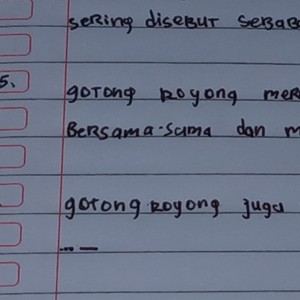 seRing diseBUT seBAB
5. goTong Royong mer
BeRsama-sama dan m
goTong Royong juga